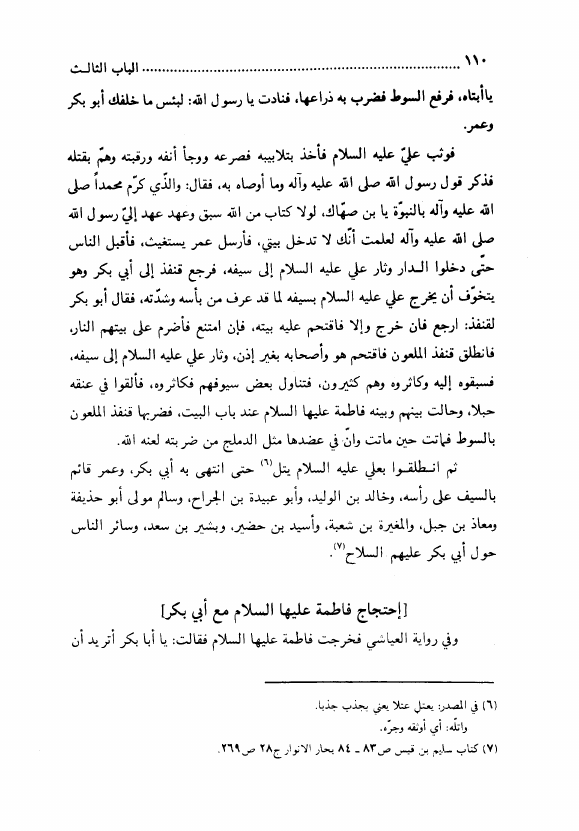 ١١٠ ........................................ الباب الثالث
ياأبتاه، فرفع السوط فضرب به ذراعها، فنادت يا رسول الله: لبئس ما خلفك أبو بكر
وعمر.
فوثب عليّ عليه السلام فأخذ بتلابيبه فصرعه ووجأ أنفه ورقبته وهمّ بقتله
فذكر قول رسول الله صلى الله عليه وآله وما أوصاه به، فقال: والذّي كرّم محمداً صلى
الله عليه وآله بالنبوّة يا بن صهّاك، لولا كتاب من الله سبق وعهد عهد إليّ رسول الله
صلى الله عليه وآله لعلمت أنّك لا تدخل بيتي، فأرسل عمر يستغيث، فأقبل الناس
حتّى دخلوا الدار وثار علي عليه السلام إلى سيفه، فرجع قنفذ إلى أبي بكر وهو
يتخوّف أن يخرج علي عليه السلام بسيفه لما قد عرف من بأسه وشدّته، فقال أبو بكر
لقنفذ: ارجع فان خرج وإلا فاقتحم عليه بيته، فإن امتنع فأضرم على بيتهم النار،
فانطلق قنفذ الملعون فاقتحم هو وأصحابه بغير إذن، وثار علي عليه السلام إلى سيفه،
فسبقوه إليه وكاثروه وهم كثيرون، فتناول بعض سيوفهم فكاثروه، فألقوا في عنقه
حبلا، وحالت بينهم وبينه فاطمة عليها السلام عند باب البيت، فضربها قنفذ الملعون
بالسوط فماتت حين ماتت وانّ في عضدها مثل الدملج من ضربته لعنه الله.
ثم انـطلقـوا بعلي عليه السلام يتل(٦) حتى انتهى به أبي بكر، وعمر قائم
بالسيف على رأسه، وخالد بن الوليد، وأبو عبيدة بن الجراح، وسالم مولى أبو حذيفة
ومعاذ بن جبل، والمغيرة بن شعبة، وأسيد بن حضير، وبشير بن سعد، وسائر الناس
حول أبي بكر عليهم السلاح(٧).
[إحتجاج فاطمة عليها السلام مع أبي بكر]
وفي رواية العياشي فخرجت فاطمة عليها السلام فقالت: يا أبا بكر أتريد أن
(٦) في المصدر: يعتل عتلا يعني يجذب جذبا.
واتلّه: أي أوثقه وجرّه.
(٧) كتاب سليم بن قيس ص٨٣ ـ ٨٤ بحار الانوار ج٢٨ ص٢٦٩.